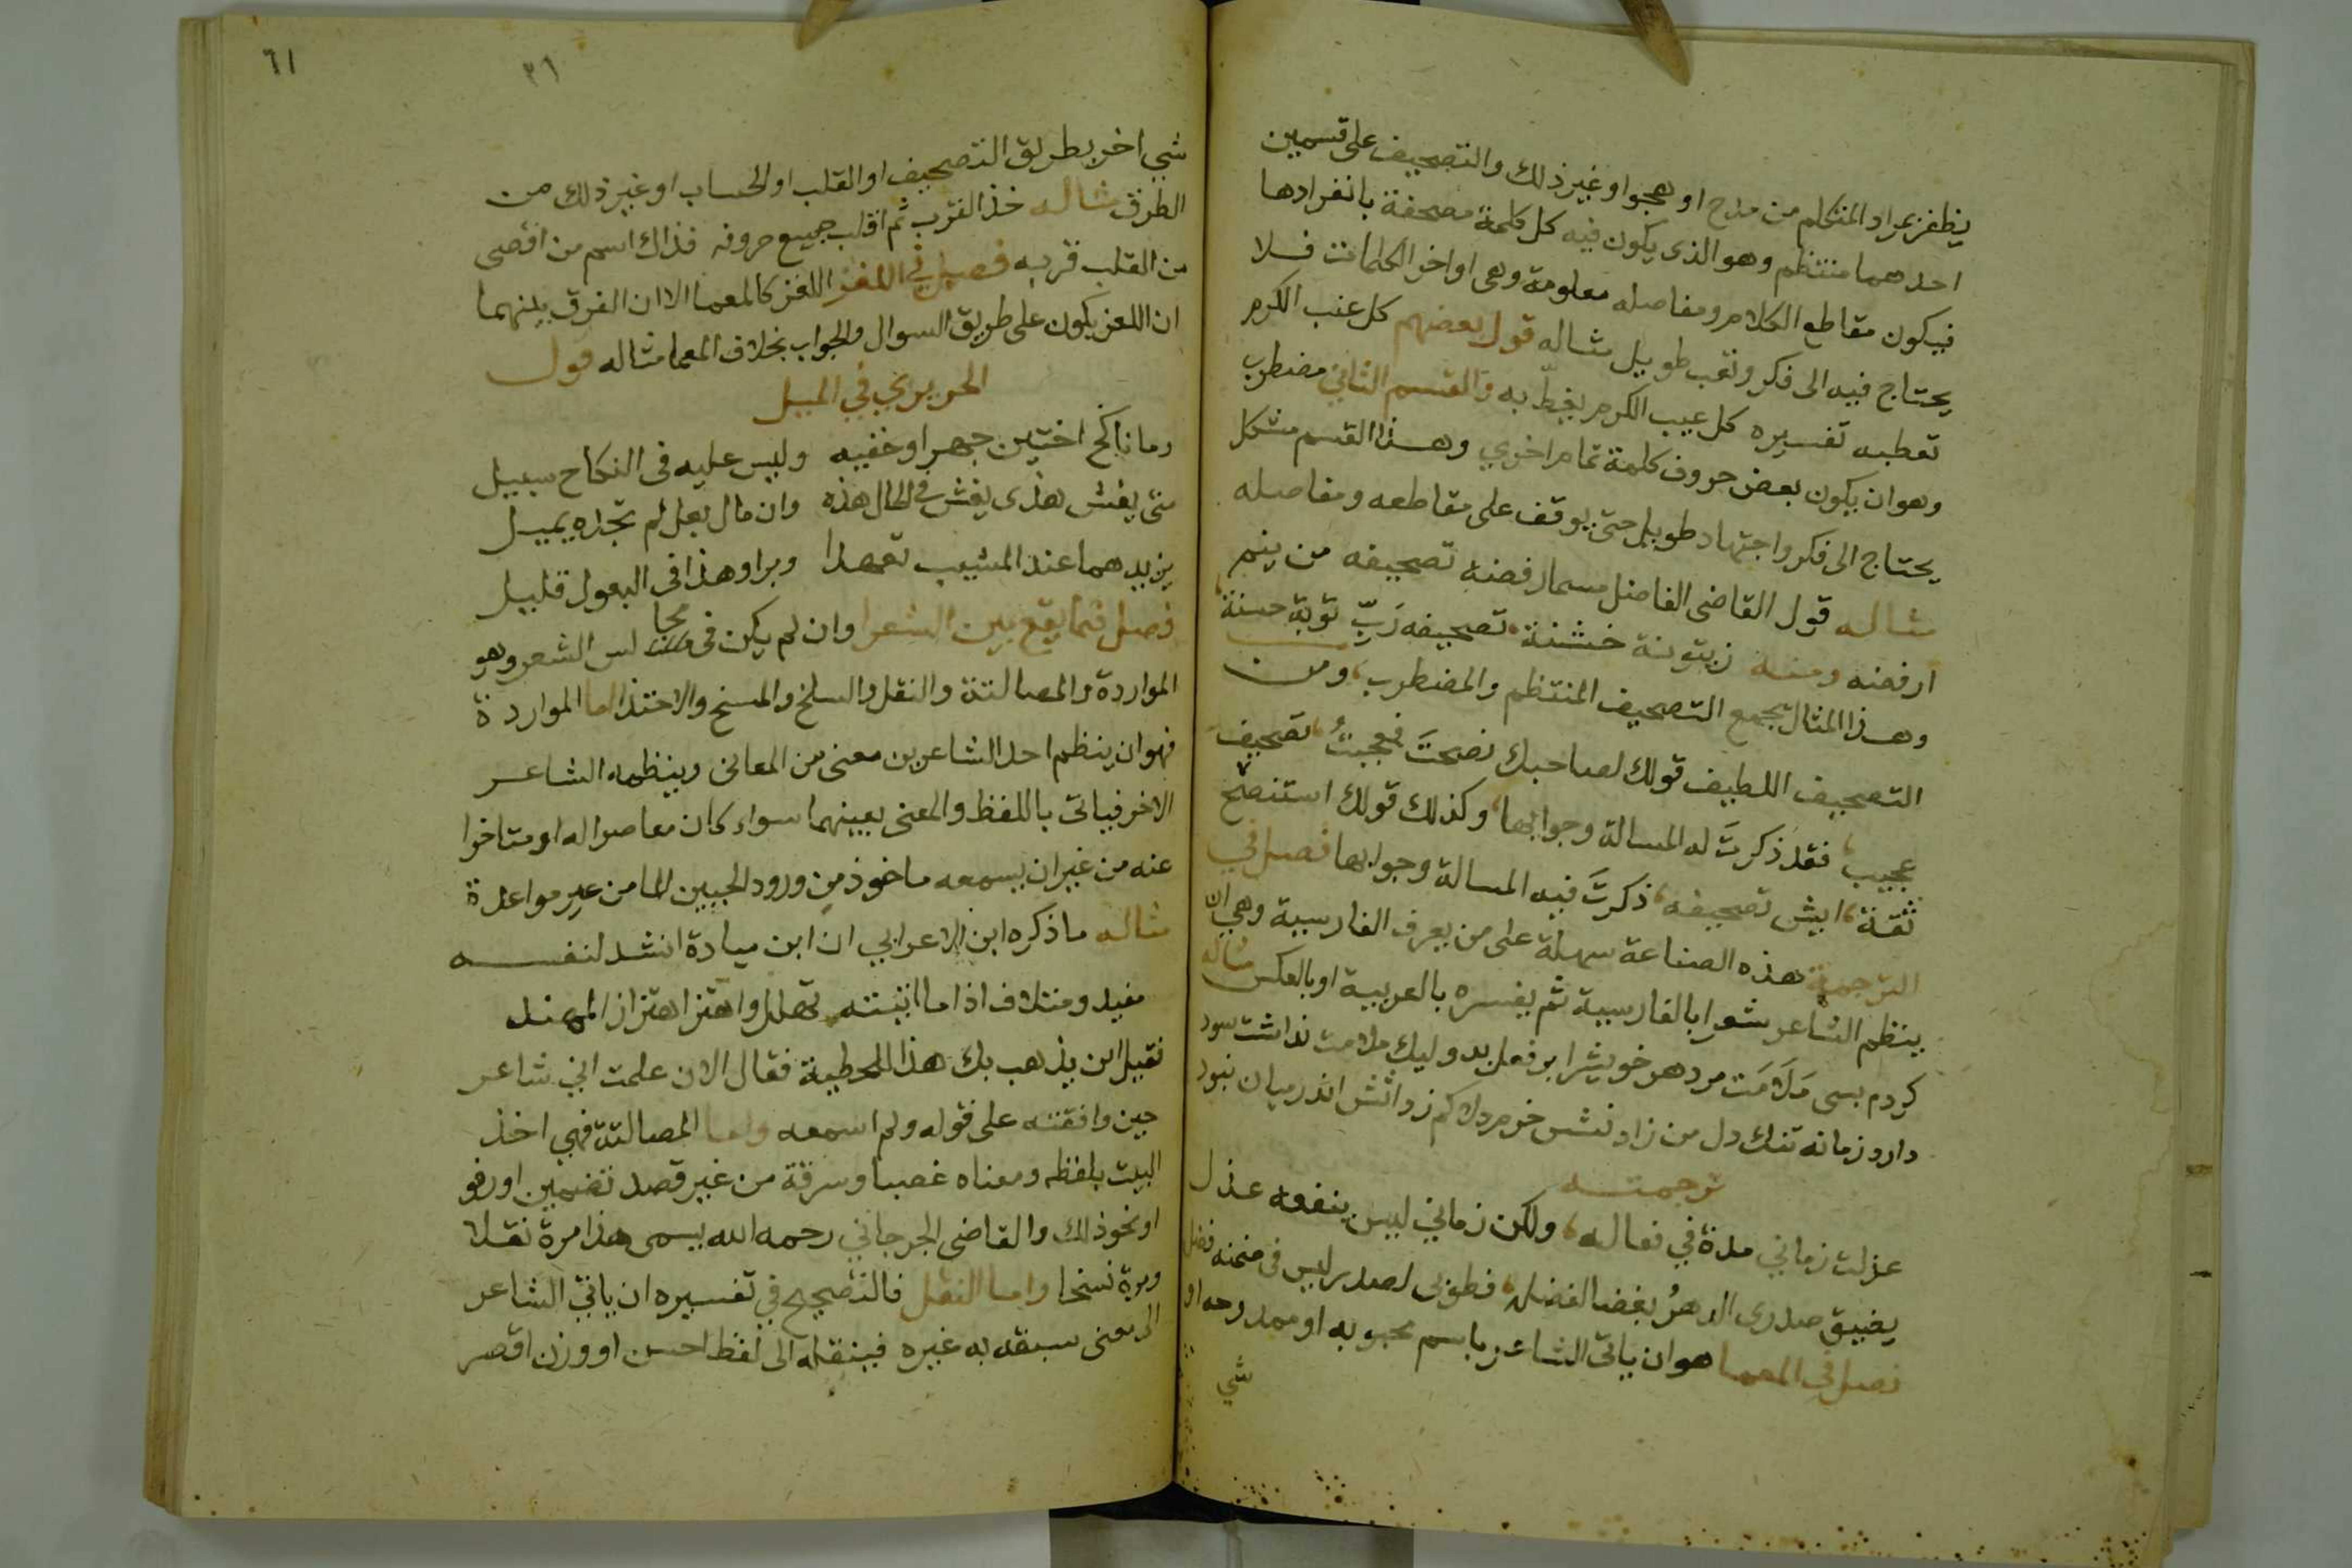 يظفر بمراد المتكلم من مدح او هجو او غير ذلك والتصحيف على قسمين
احدهما منتظم وهو الذى يكون فيه كل كلمة مصحفة بانفرادها
فيكون مقاطع الكلام ومفاصله معلومة وهى اواخر الكلمات فلا
يحتاج فيه الى فكر وتعب طويل مثاله قول بعضهم كل عنب الكرم
تعطبه تفسيره كل عيب الكرم يغطّ به والقسم الثانى مضطرب
وهو ان يكون بعض حروف كلمة تمام اخرى وهذا القسم مشكل
يحتاج الى فكر واجتهاد طويل حتى يوقف على مقاطعه ومفاصله
مثاله قول القاضى الفاضل مسمار فضه تصحيفه من ينم
ارفضه ومنه زيتونة خشنة تصحيفه رَبّ توبة حسنة
وهذا المثال يجمع التصحيف المنتظم والمضطرب ومن
التصحيف اللطيف قولك لصاحبك نصحتَ فعجبتُ تصحيف
عجيب فقد ذكرتَ له المسالة وجوابها وكذلك قولك استنصح
ثقة ايش تصحيفه ذكرتَ فيه المسالة وجوابها فصل في
الترجمة هذه الصناعة سهلة على من يعرف الفارسية وهي ان
ينظم الشاعر شعرا بالفارسية ثم يفسره بالعربية او بالعكس مثاله
كردم بسى مَلَامَت مر دهر خويشرا بر فعل بد وليك ملامت نداشت سود
دارد زمانه تنك دل من زدانش خرم دلا كم زدانش اندر ميان نبود
ترجمته
عزلت زماني مدة في فعاله ولكن زماني ليس ينفعه عذل
يضيق صدرى الدهرُ بغضا لفضل فطوبى لصدر ليس فى ضمنه فضل
فصل في المعما هو ان ياتى الشاعر باسم محبوبه او ممدوحه او
شي
٦١
٢٦
شي اخر بطريق التصحيف او القلب او الحساب او غير ذلك من
الطرق مثاله خذ القرب ثم اقلب جميع حروفه فذاك اسم من اقصى
من القلب قربه فصل في اللغز اللغز كالمعما الا ان الفرق بينهما
ان اللغز يكون على طريق السوال والجواب بخلاف المعما مثاله قول
الحريري في الميل
وما ناكح اختين جهرا وخفيه وليس عليه فى النكاح سبيل
متى يغش هذى يغش فى الحال هذه وان مال بعل لم تجده يميل
يزيدهما عند المشيب تعهدا وبرا وهذا فى البعول قليل
فصل فيما يقع بين الشعرا وان لم يكن فى مجا لس الشعر وهو
المواردة والمصالتة والنقل والسلخ والمسخ والاحتذا اما المواردة
فهو ان ينظم احد الشاعرين معنى من المعانى وينظمه الشاعر
الاخر فياتى باللفظ والمعنى بعينهما سواء كان معاصرا له او متاخرا
عنه من غير ان يسمعه ماخوذ من ورود الحبيبين الما من غير مواعدة
مثاله ما ذكره ابن الاعرابي ان ابن ميادة انشد لنفسه
مفيد ومتلاف اذا ما اتيته تهلل واهتز اهتزاز المهند
فقيل اين يذهب بك هذا للحطية فقال الان علمت اني شاعر
حين وافقته على قوله ولم اسمعه واما المصالتة فهي اخذ
البيت بلفظه ومعناه غصبا وسرقة من غير قصد تضمين او رفو
او نحو ذلك والقاضى الجرجاني رحمه الله يسمى هذا مرة نقلا
ومرة نسخا واما النقل فالصحيح في تفسيره ان ياتي الشاعر
الى معنى سبقه به غيره فينقله الى لفظ احسن او وزن اقصر